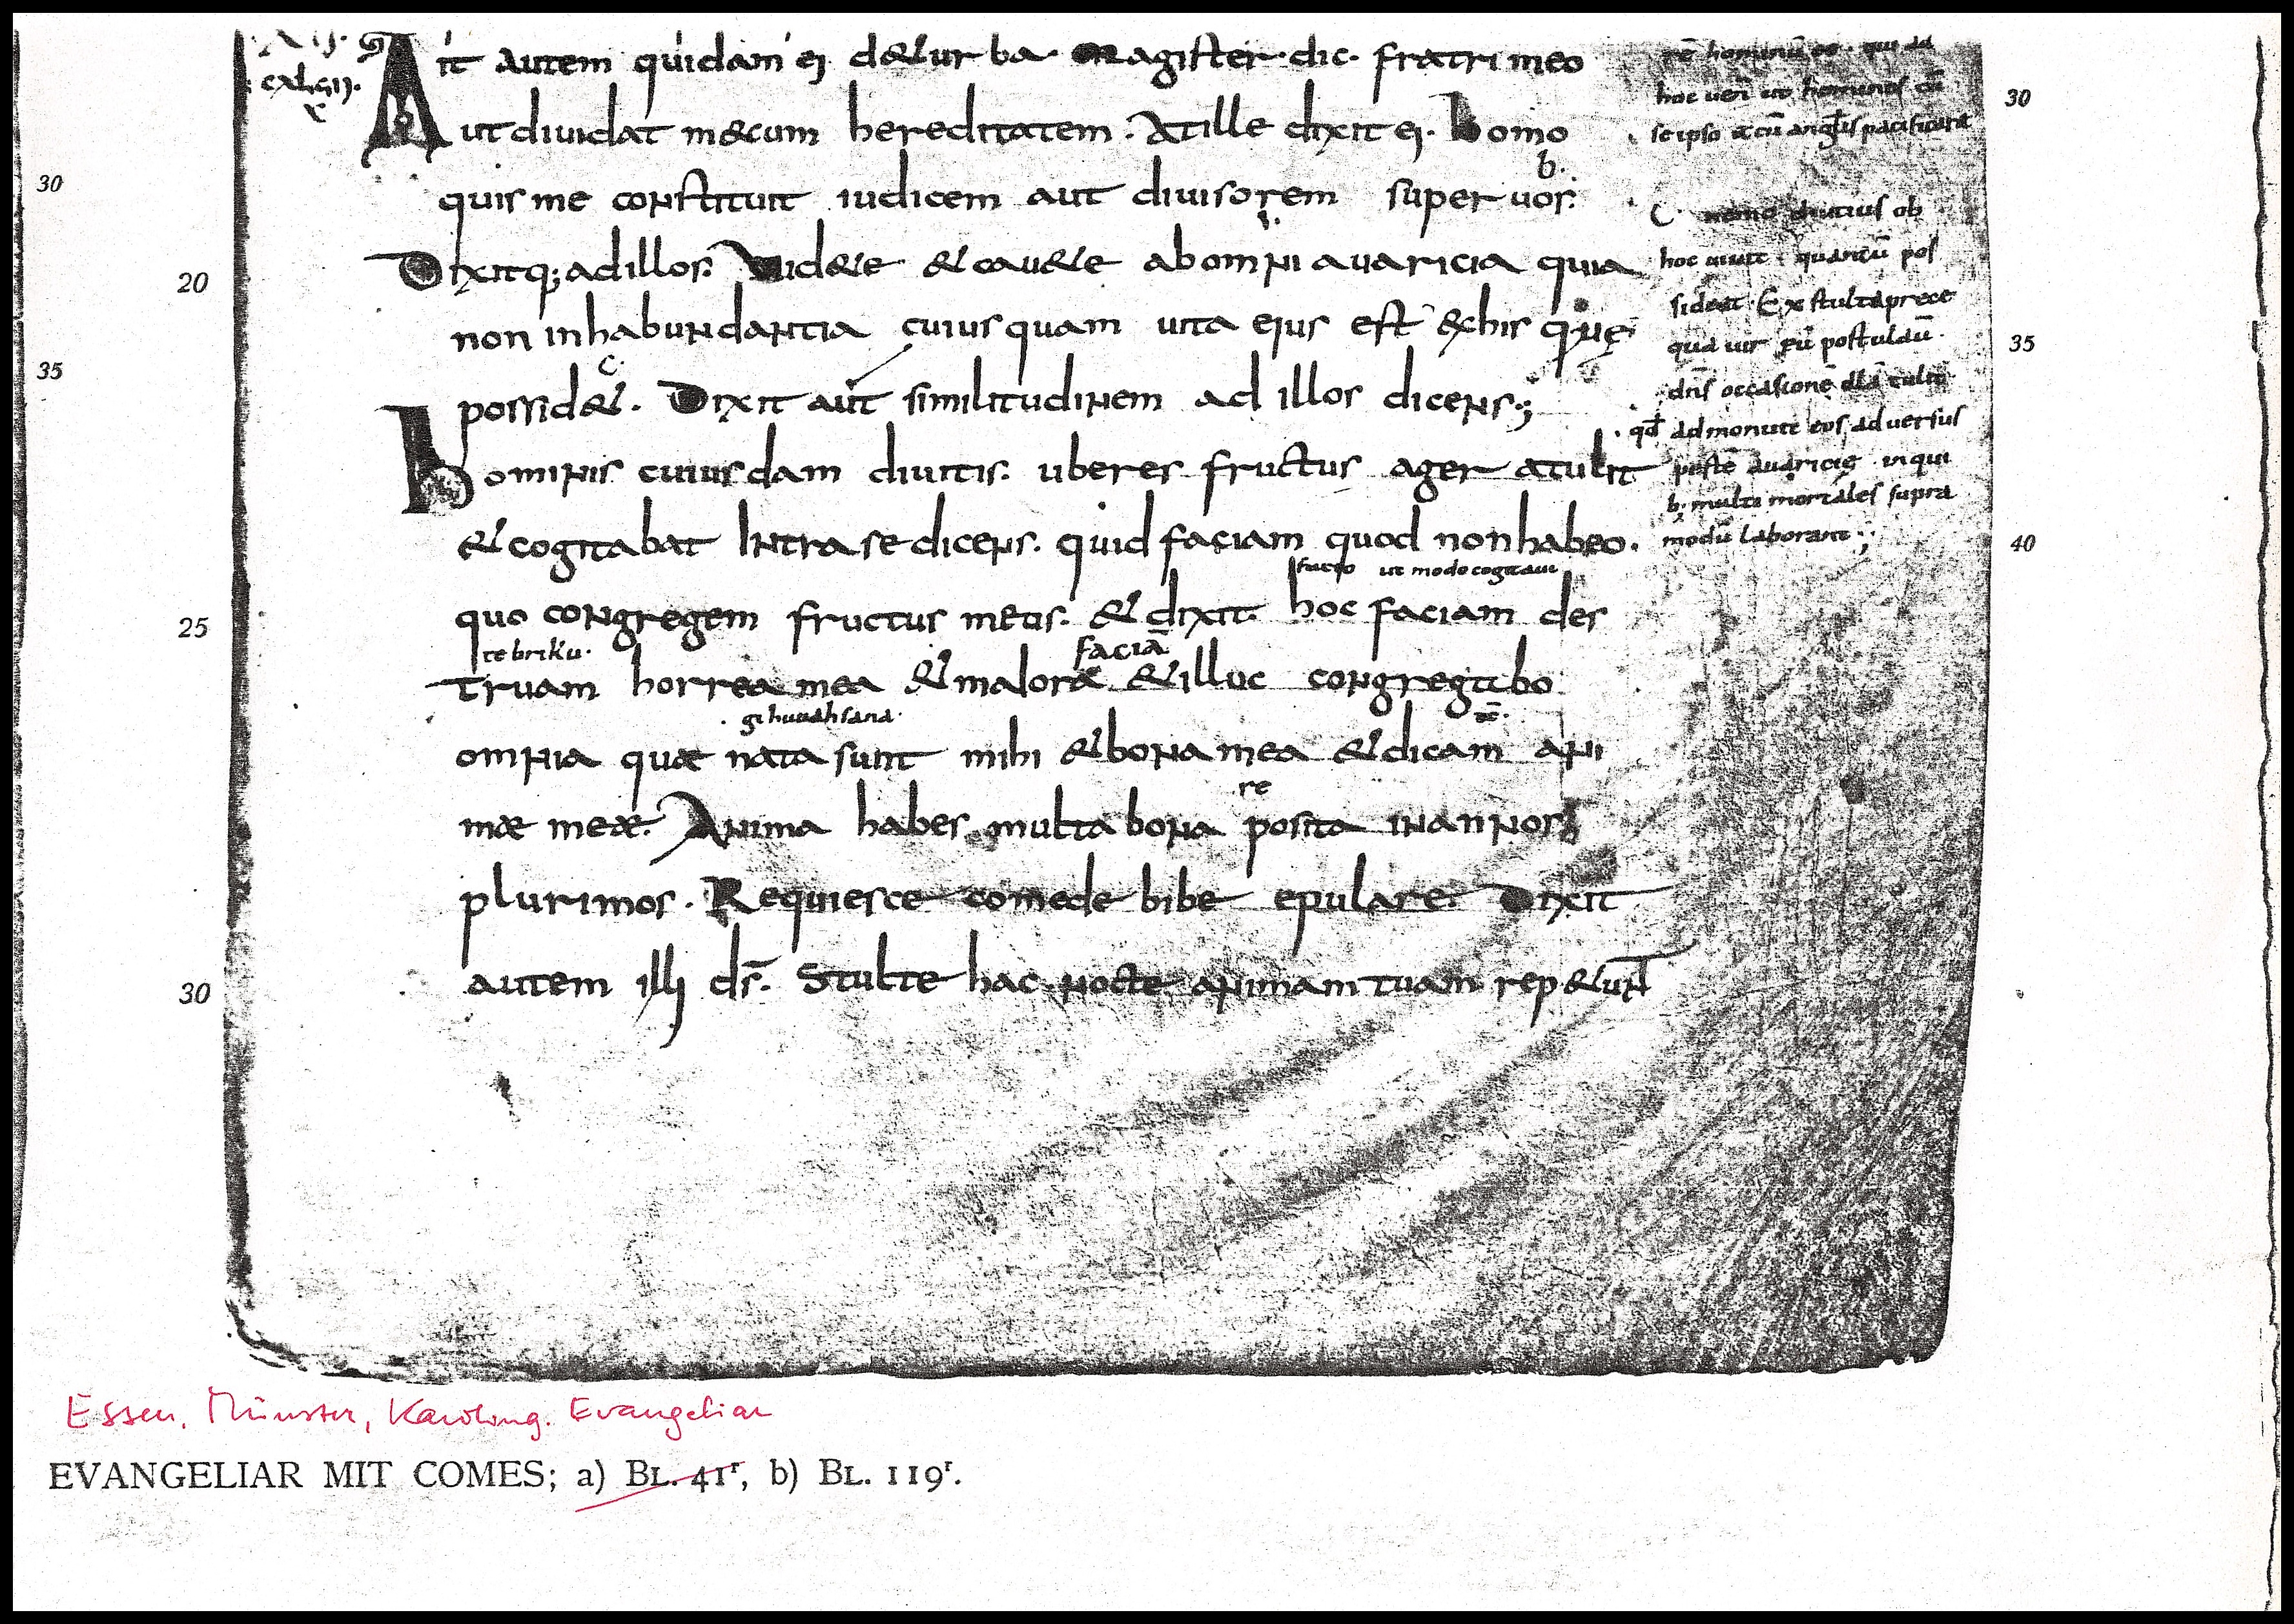 Ait autem quidam ei deturba. Magister. dic. fratri meo
ut diuidat mecum hereditatem. At ille dixit ei. homo
b.
quis me constituit iudicem aut diuisorem super uos.
Dixitq; ad illos. Uidete & cauete ab omni auaricia quia
non in habundantia cuiusquam uita eius est ex his quę
c.
possidet. Dixit aut similitudinem ad illos dicens;
hominis cuiusdam diuitis. uberes fructus ager atulit
& cogitabat Intra se dicens. quid faciam quod non habeo.
facio ut modo cogitaui
quo congregem fructus meus. & dixit. hoc faciam des
te briku. faciā
truam horrea mea & maiora & illuc congregabo
gi huuahsana.
omnia quæ nata sunt mihi & bona mea & dicam ani
re
mæ meæ. Anima habes multa bona posita in annos
plurimos. Requiesce comede bibe epulare. Dixit
autem illi d̄s. Stulte hac nocte animam tuam repetunt
qui ad
hoc homines cū
se ipso pacificarā
C. nemo diutius ob
hoc uiuit quantū pos
sideat. Ex stulta prece
qua uir postulaū.
dn̄s occasionē
qd admonuit eos aduersus
pestē auaricię in qui
b; multi mortales supra
modū laborant;
30
35
20
25
30
30
35
40
Essen, Münster, Karoling. Evangeliar
EVANGELIAR MIT COMES; a) BL. 41r, b) BL. 119r.